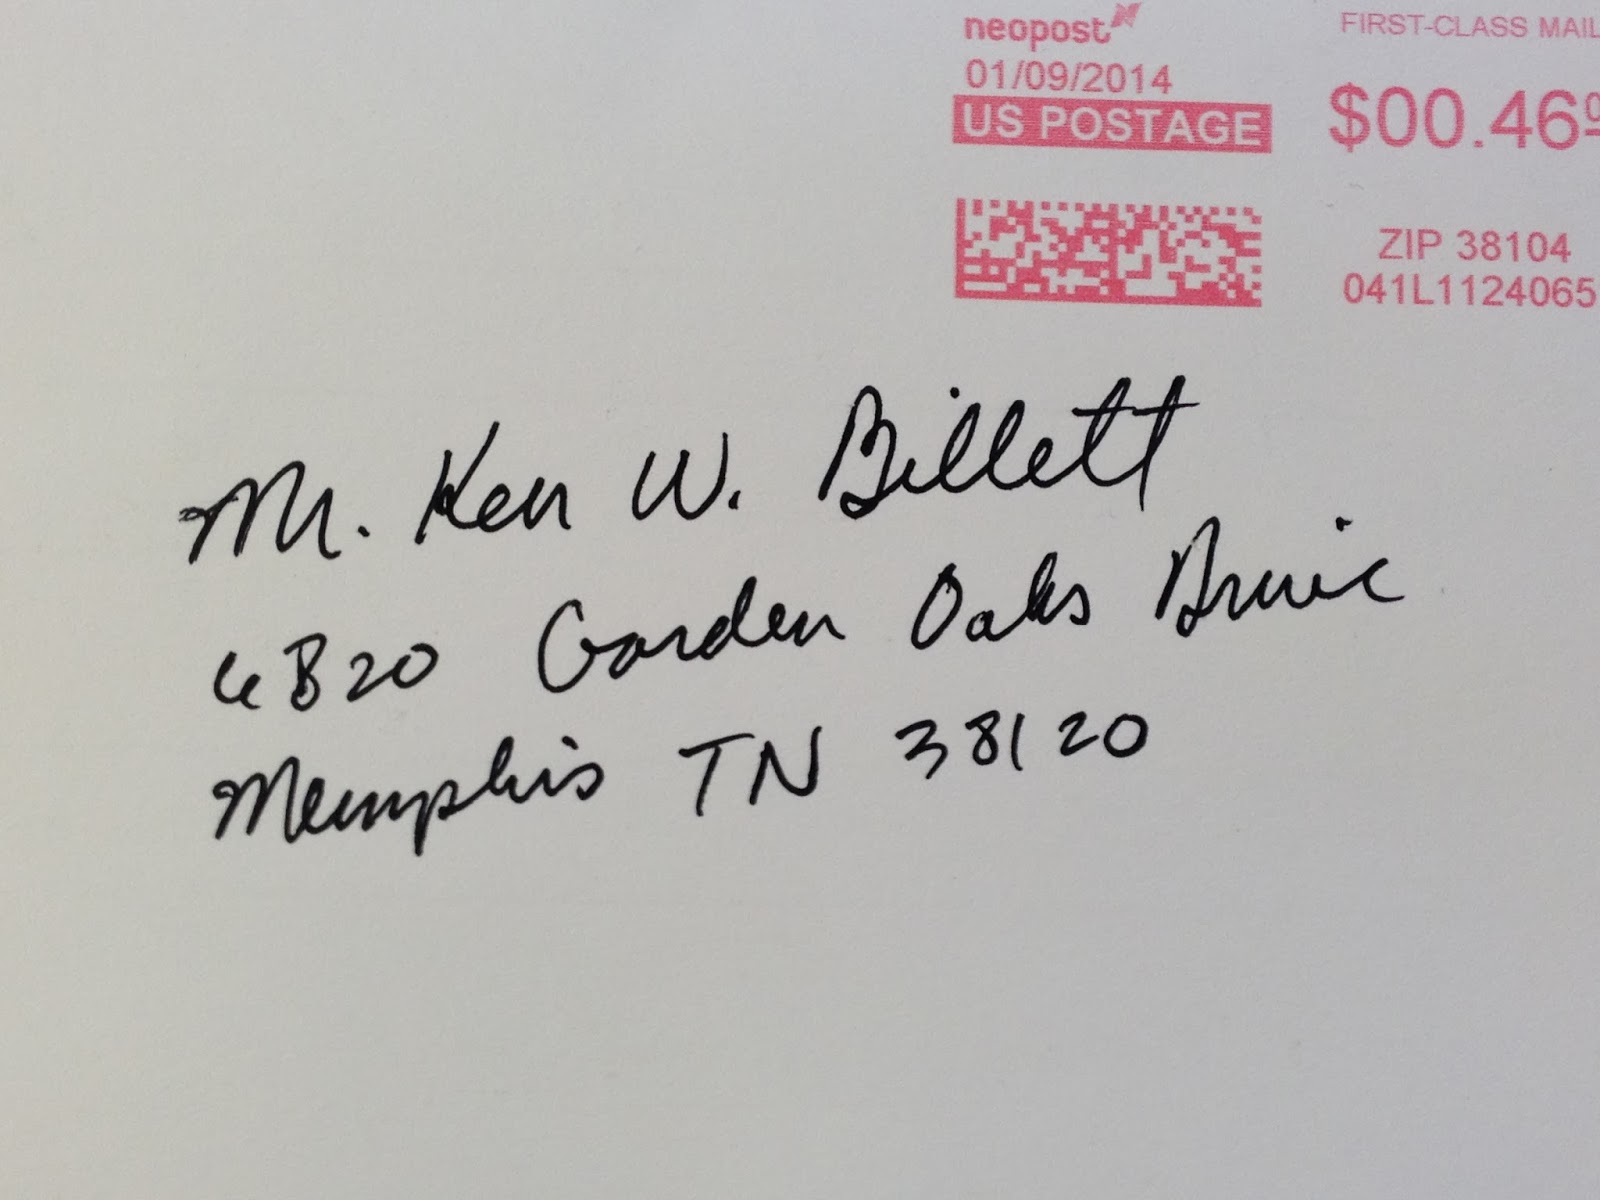 neopost
01/09/2014
US POSTAGE
FIRST-CLASS MAIL
$00.46⁰
ZIP 38104
041L1124065
Mr. Ken W. Billett
6820 Garden Oaks Drive
Memphis TN 38120